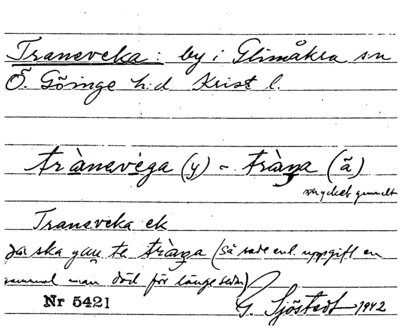 Traneveka: by i Glimåkra sn
Ö. Göinge h:d Krist l.
trànavéga (y) - tràna (ä)
mycket gammalt
Traneveka ek
ska te tràna (Så sade enl. uppgift en
gammal man död för länge sedan)
Nr 5421
G. Sjöstedt 1942